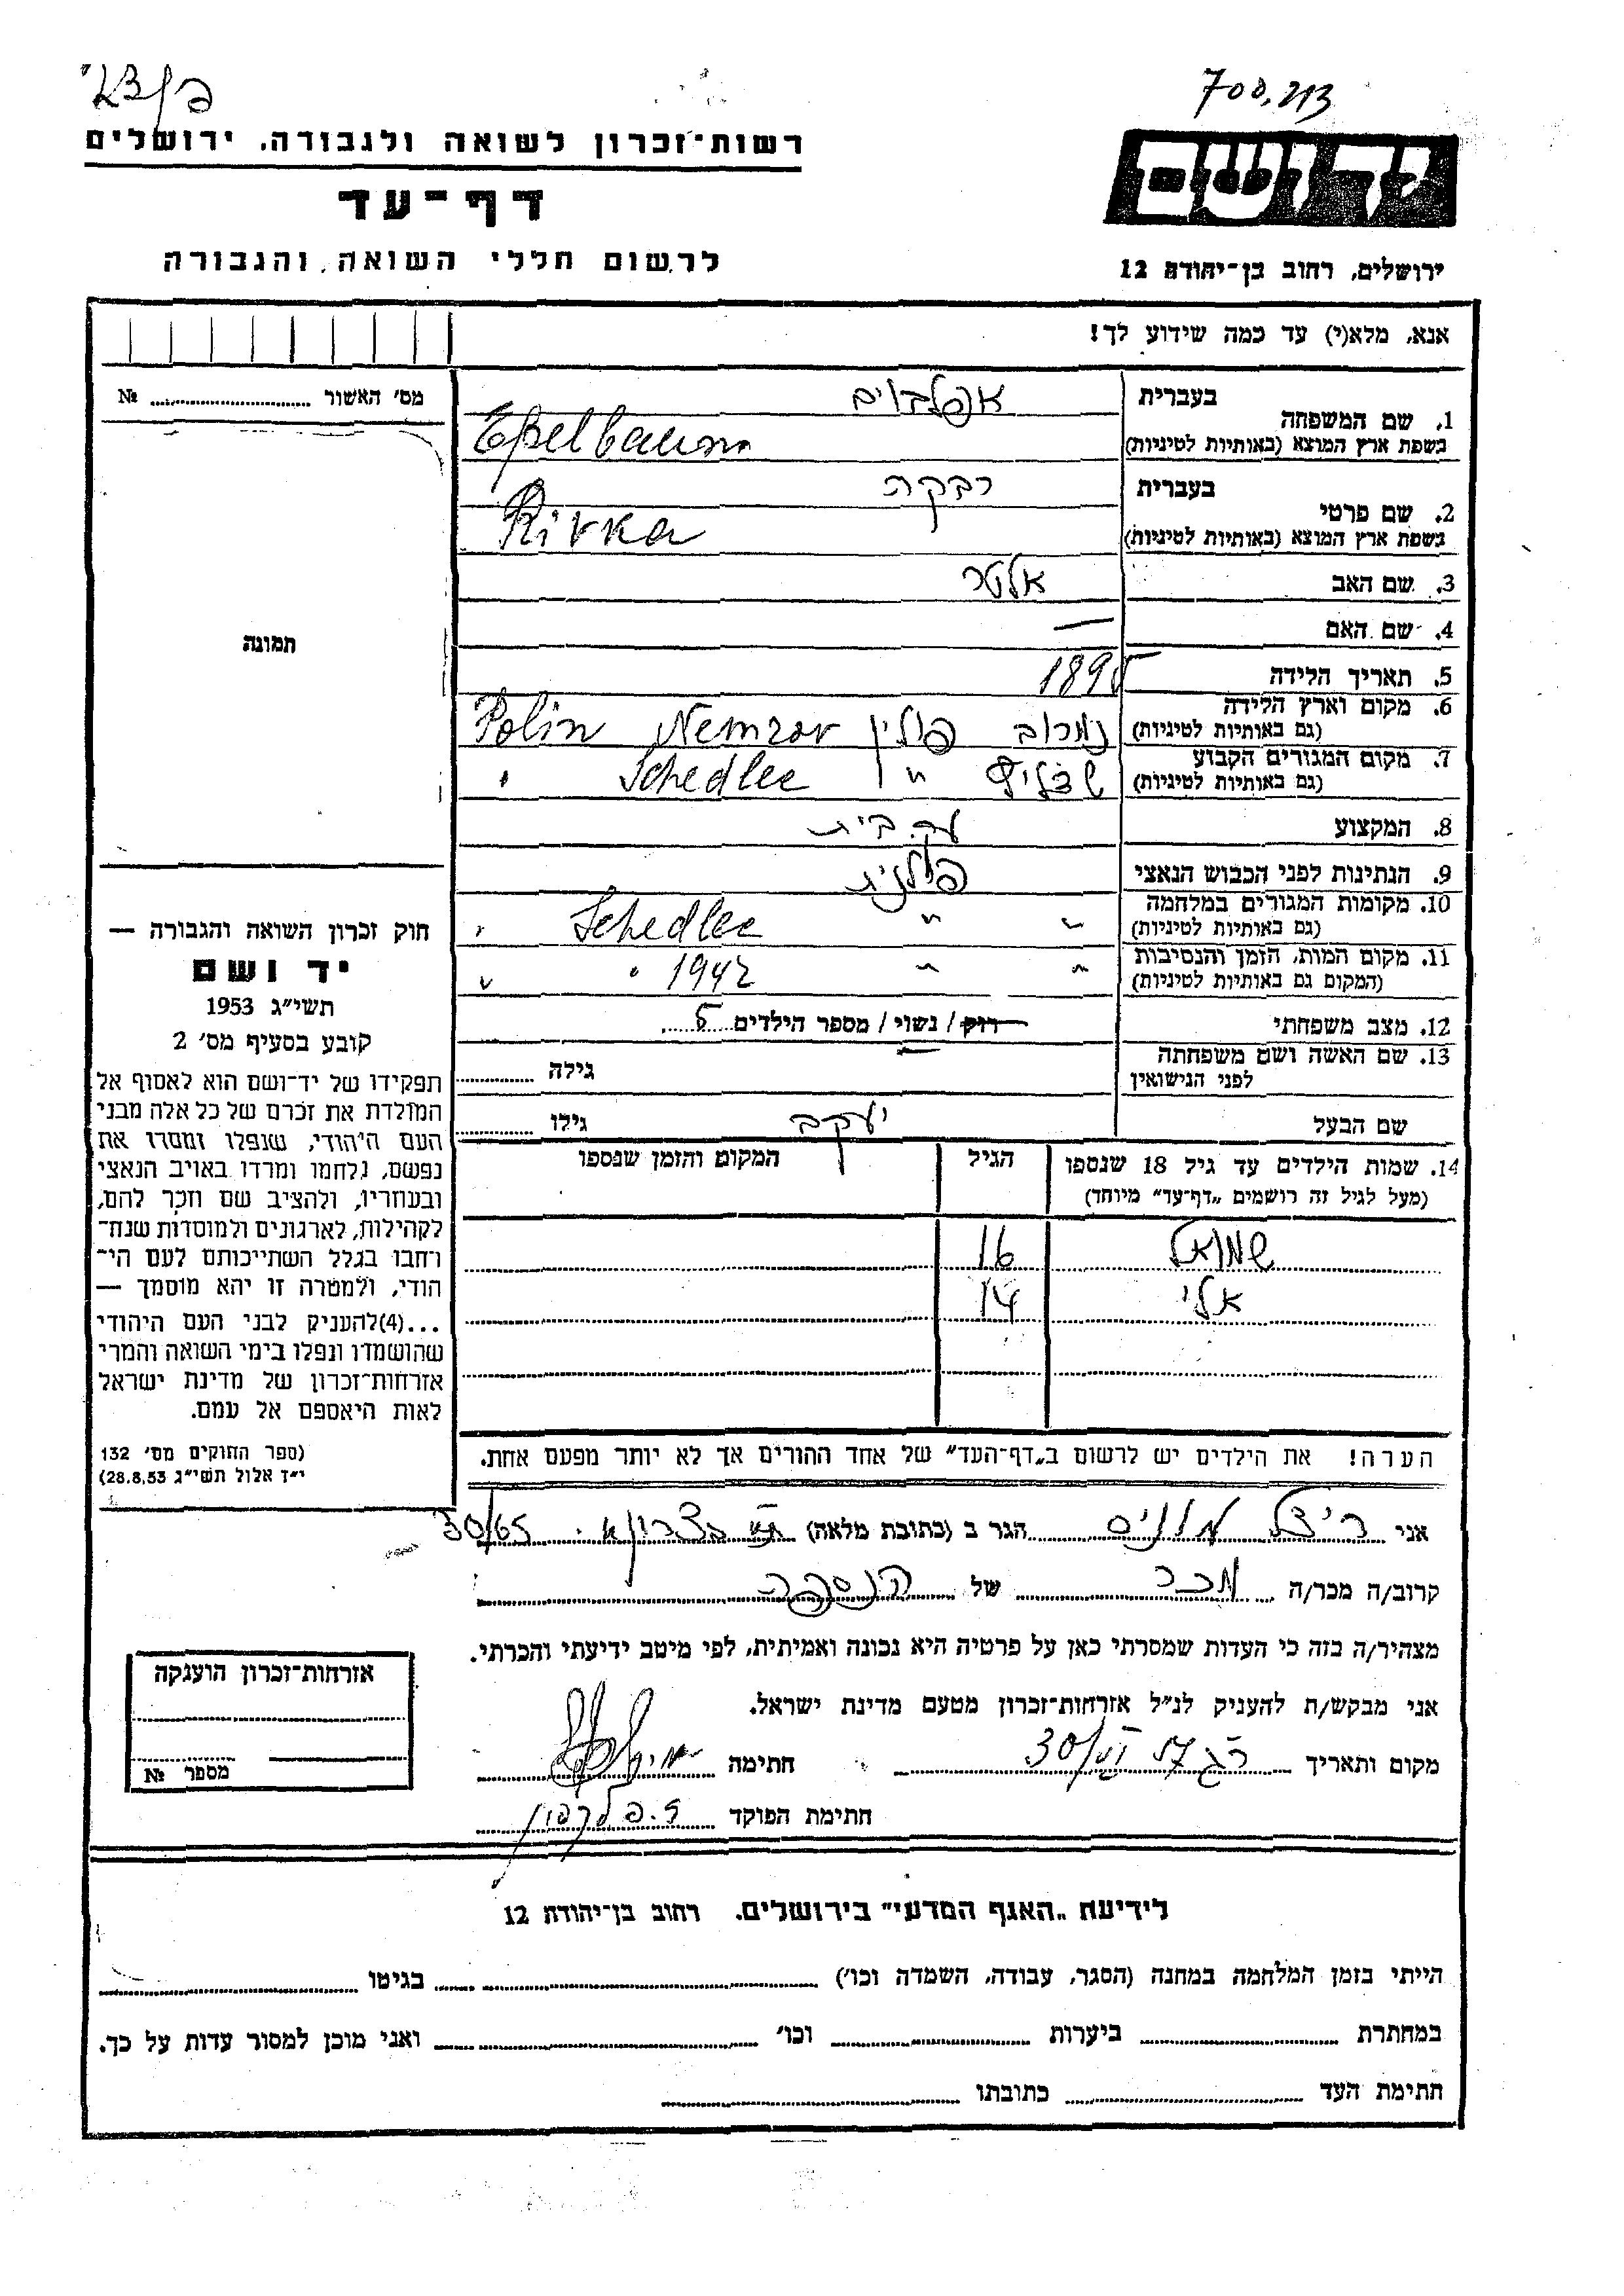 700,213
יד ושם
ירושלים, רחוב בן־יהודה 12
רשות־זכרון לשואה ולגבורה, ירושלים
דף־עד
לרשום חללי השואה והגבורה
אנא, מלא(י) עד כמה שידוע לך!
מס' האשור ... №
תמונה
1. שם המשפחה בעברית אפלבוים
בשפת ארץ המוצא (באותיות לטיניות) Epelbaum
2. שם פרטי בעברית רבקה
בשפת ארץ המוצא (באותיות לטיניות) Rivka
3. שם האב אלטר
4. שם האם —
5. תאריך הלידה 1895
6. מקום וארץ הלידה נמרוב פולין Nemrov Polin
(גם באותיות לטיניות)
7. מקום המגורים הקבוע " Schedlec "
(גם באותיות לטיניות)
8. המקצוע עק. בית
9. הנתינות לפני הכבוש הנאצי פולנית
10. מקומות המגורים במלחמה " " Schedlec "
(גם באותיות לטיניות)
11. מקום המות, הזמן והנסיבות " " 1942 "
(המקום גם באותיות לטיניות)
12. מצב משפחתי רוק / נשוי / מספר הילדים 5
13. שם האשה ושם משפחתה גילה
לפני הנישואין
שם הבעל יעקב גילו
14. שמות הילדים עד גיל 18 שנספו הגיל המקום והזמן שנספו
(מעל לגיל זה רושמים "דף־עד" מיוחד)
שמואל 16
אלי 14
הערה! את הילדים יש לרשום ב"דף־העד" של אחד ההורים אך לא יותר מפעם אחת.
חוק זכרון השואה והגבורה —
יד ושם
תשי"ג 1953
קובע בסעיף מס' 2
תפקידו של יד־ושם הוא לאסוף אל
המולדת את זכרם של כל אלה מבני
העם היהודי, שנפלו ומסרו את
נפשם, נלחמו ומרדו באויב הנאצי
ובעוזריו, ולהציב שם וזכר להם,
לקהילות, לארגונים ולמוסדות שנח־
רחבו בגלל השתייכותם לעם הי־
הודי, ולמטרה זו יהא מוסמך —
...(4)להעניק לבני העם היהודי
שהושמדו ונפלו בימי השואה והמרי
אזרחות־זכרון של מדינת ישראל
לאות היאספם אל עמם.
(ספר החוקים מס' 132
י"ד אלול תשי"ג 28.8.53)
אני הגר ב (כתובת מלאה) 30/65
קרוב/ה מכר/ה מכר של הנספה
מצהיר/ה בזה כי העדות שמסרתי כאן על פרטיה היא נכונה ואמיתית, לפי מיטב ידיעתי והכרתי.
אני מבקש/ת להעניק לנ"ל אזרחות־זכרון מטעם מדינת ישראל.
מקום ותאריך חתימה
חתימת הפוקד
אזרחות־זכרון הוענקה
מספר №
לידיעת "האגף המדעי" בירושלים. רחוב בן־יהודה 12
הייתי בזמן המלחמה במחנה (הסגר, עבודה, השמדה וכו') בגיטו
במחתרת ביערות וכו' ואני מוכן למסור עדות על כך.
חתימת העד כתובתו